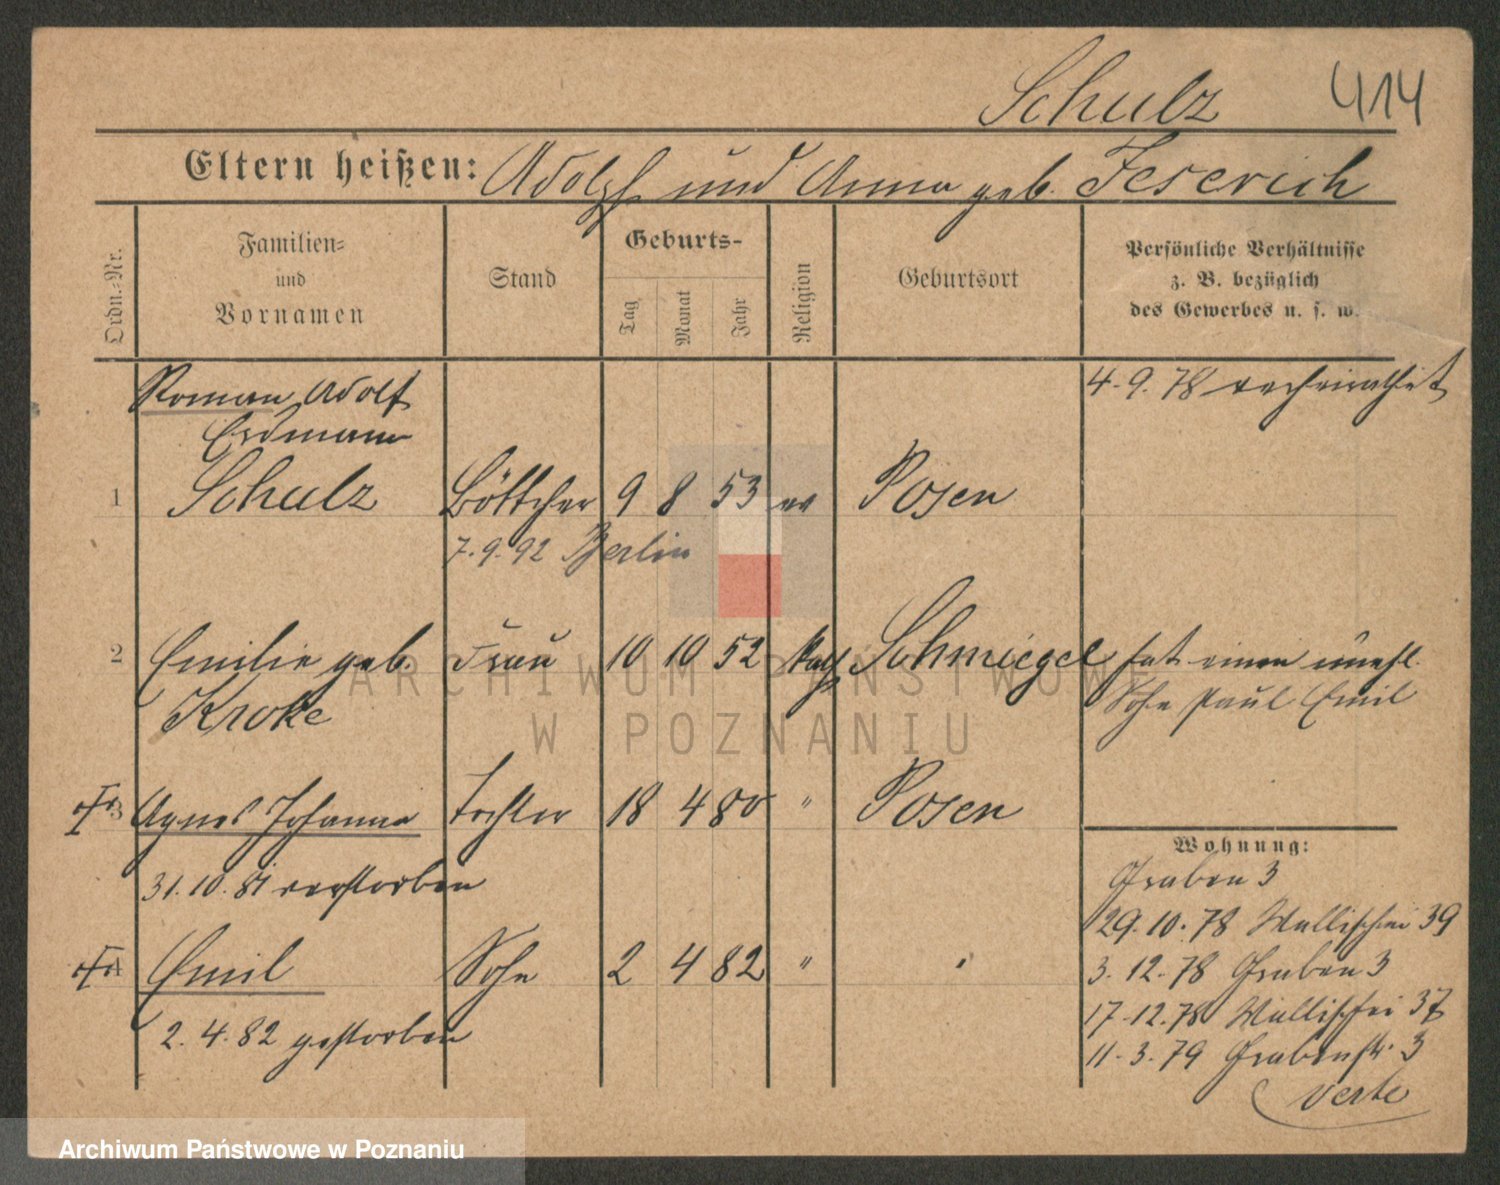 Schulz 414
Eltern heißen: Adolph und Anna geb. Feserich
Ordn.-Nr.
Familien-
und
Vornamen
Stand
Geburts-
Tag
Monat
Jahr
Religion
Geburtsort
Persönliche Verhältnisse
z. B. bezüglich
des Gewerbes u. s. w.
Roman Adolf
Erdmann
4.9.78 verheirathet
1 Schulz Böttcher 9 8 53 ev Posen
7.9.92 Berlin
2 Emilie geb. Frau 10 10 52 kath Schmiegel hat einen unehl.
Kroke
Sohn Paul Emil
3 Agnes Johanna Tochter 18 4 80 " Posen
31.10.81 verstorben
4 Emil Sohn 2 4 82 " "
2.4.82 gestorben
Wohnung:
Graben 3
29.10.78 Wallischei 39
3.12.78 Graben 3
17.12.78 Wallischei 37
11.3.79 Grabenstr. 3
verte
ARCHIWUM PAŃSTWOWE
W POZNANIU
Archiwum Państwowe w Poznaniu